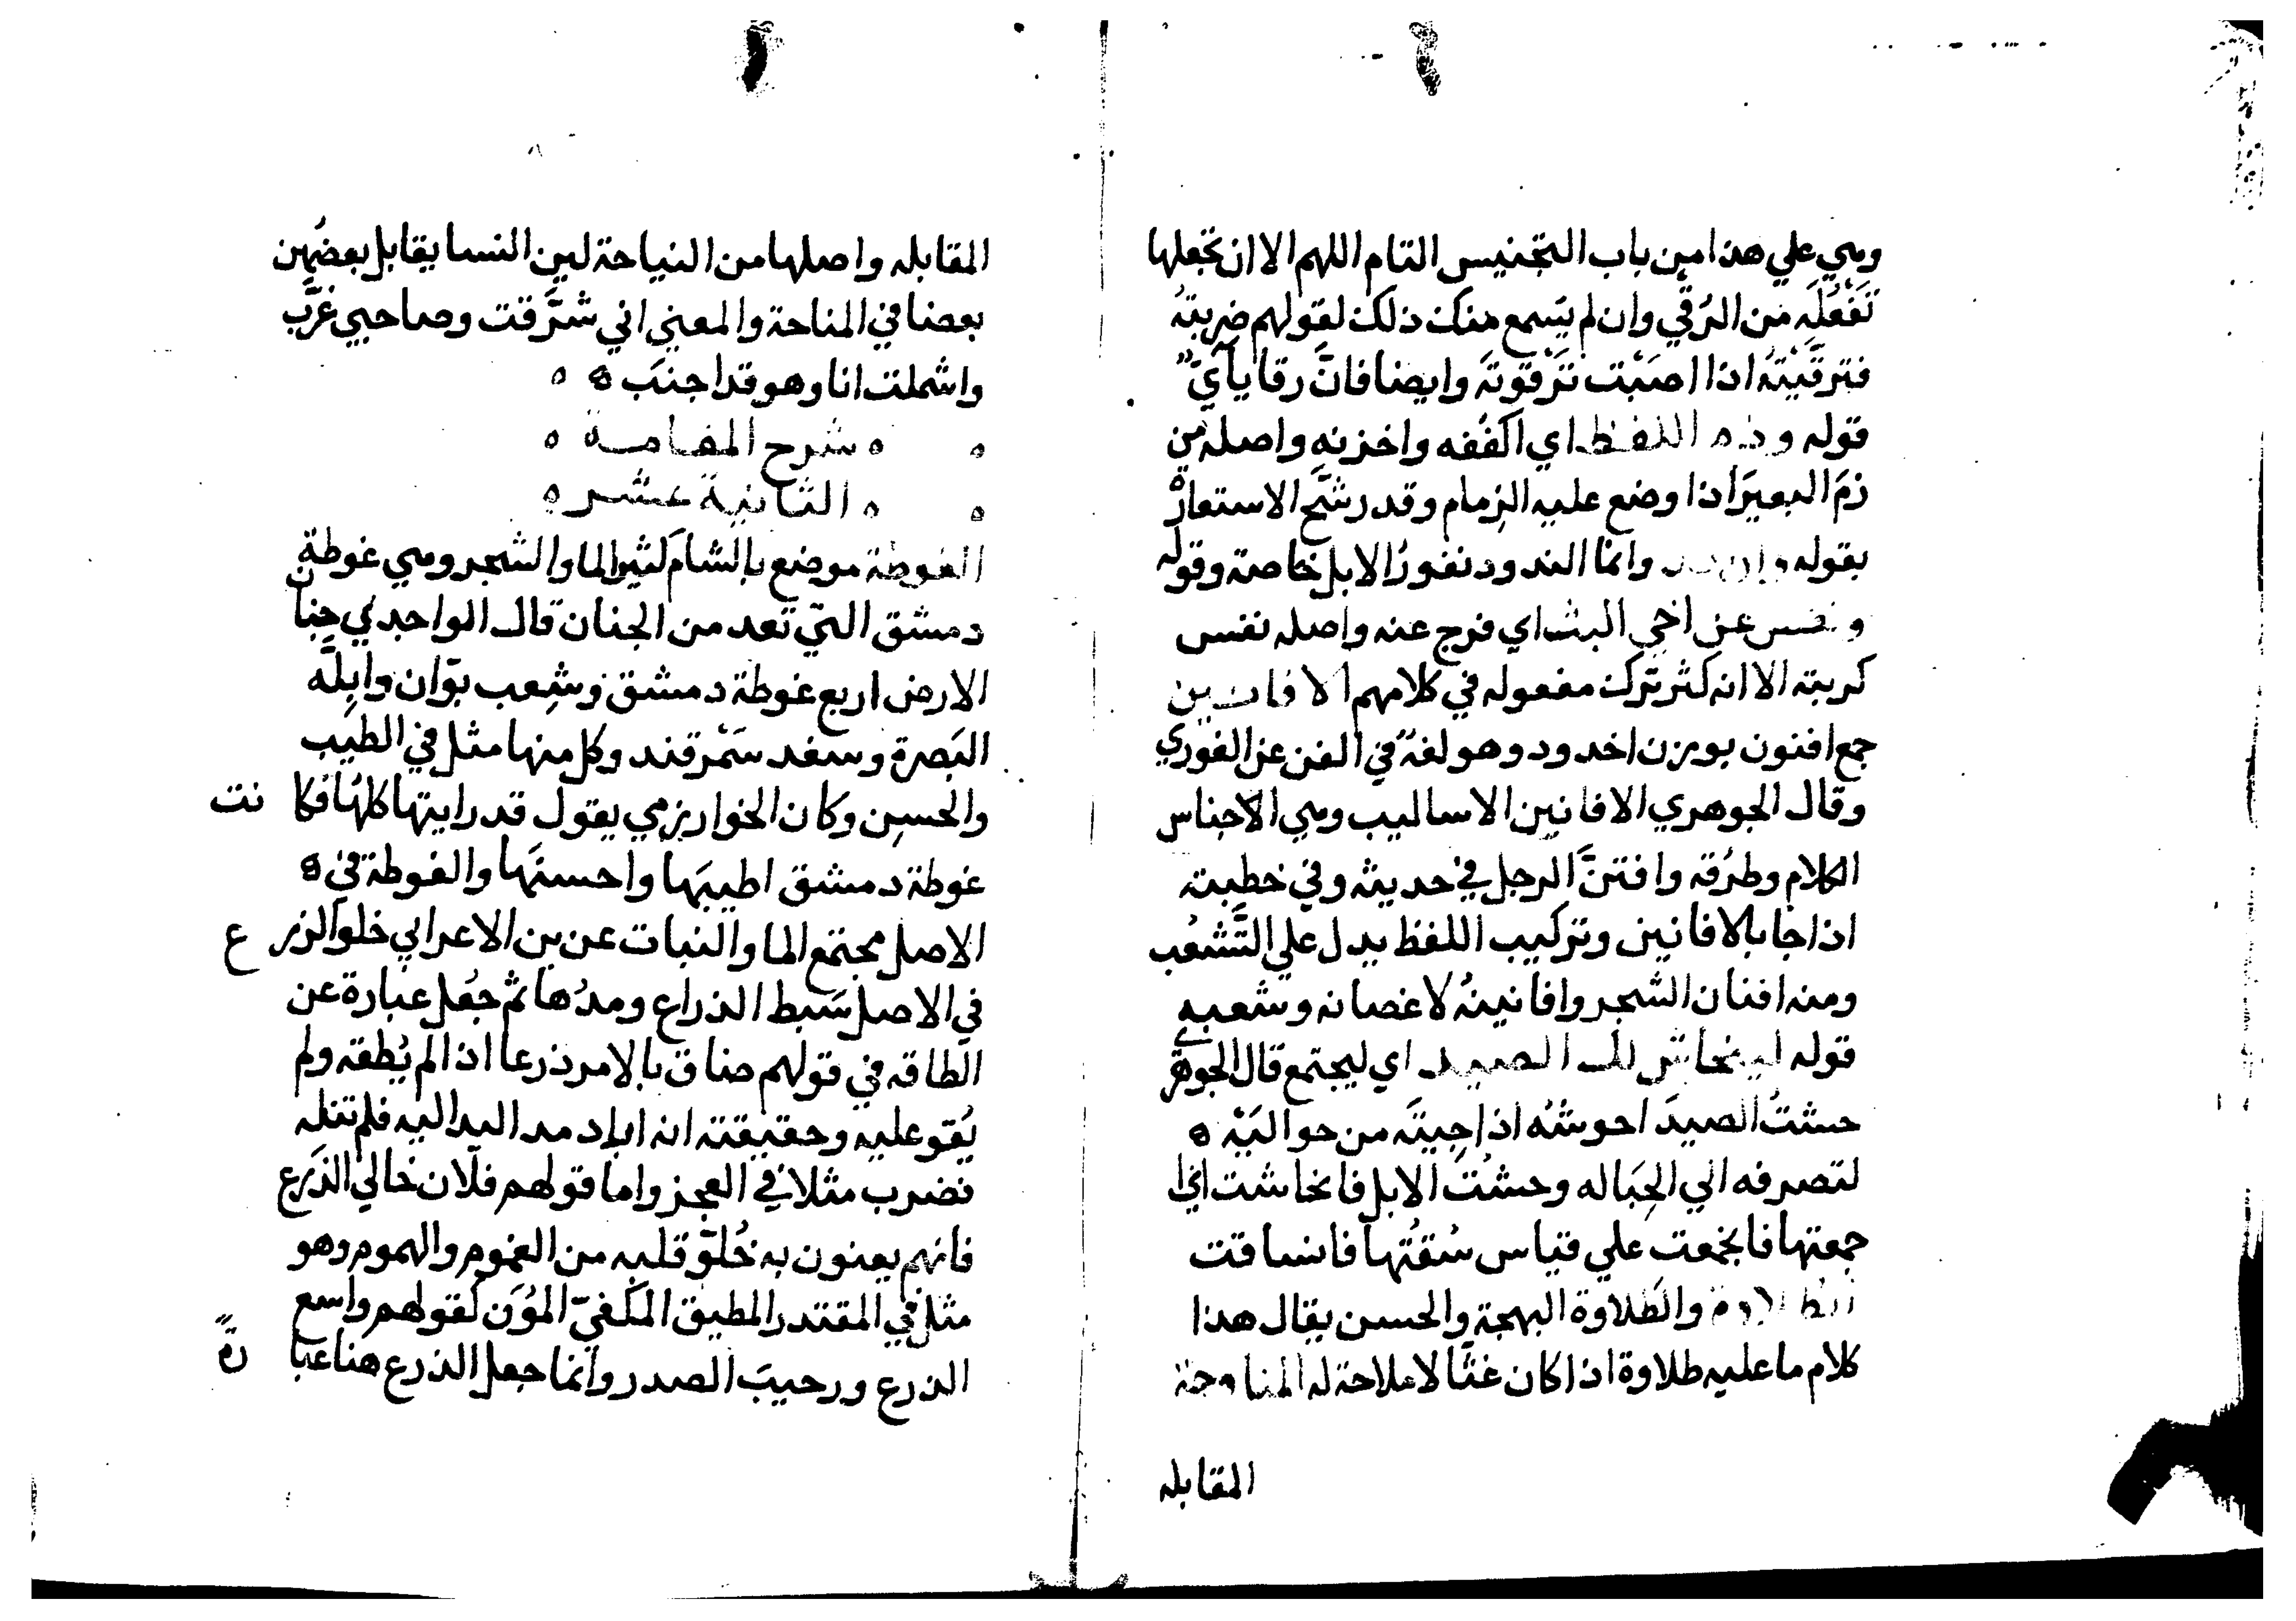 وهي علي هذا من باب التجنيس التام اللهم الا ان تجعلها
تَفَعْلَه من الرقي وان لم يسمع منك ذلك لقولهم ضربته
فترقيته اذا اصبت ترقوته وايضا فان رقا يايّ
قوله وزم اللفظ اي اكففه واخزنه واصله من
زم البعير اذا وضع عليه الزمام وقد رشح الاستعارة
بقوله وانما الندود نفور الابل خاصة وقوله
ونفس عن اخي البث اي فرج عنه واصله نفس
كربته الا انه كثر ترك مفعوله في كلامهم الافانين
جمع افنون بوزن اخدود وهو لغة في الفن عن الغوري
وقال الجوهري الافانين الاساليب وهي الاجناس
الكلام وطرقه وافتنّ الرجل في حديثه وفي خطبته
اذا جا بالافانين وتركيب اللفظ يدل علي التشعب
ومنه افنان الشجر وافانينه لاغصانه وشعبه
قوله لينحاش الصيد اي ليجتمع قال الجوهري
حشت الصيد احوشه اذا جيته من حواليه ه
لتصرفه الي الحباله وحشت الابل فانحاشت اي
جمعتها فانجمعت علي قياس سقتها فانساقت
الطلاوة والطلاوة البهجة والحسن يقال هذا
كلام ما عليه طلاوة اذا كان غثا لا ملاحة له المناوحة
المقابله
المقابله واصلها من النياحة لين النسا يقابل بعضهن
بعضا في المناحة والمعني اني شرّقت وصاحبي غرّب
واشملت انا وهو قد اجنب ه ه
ه ه شرح المقامة ه
ه ه الثانية عشر ه
الغوطة موضع بالشام كثير الما والشجر وهي غوطة
دمشق التي تعد من الجنان قال الواحدي جنان
الارض اربع غوطة دمشق وشعب بوّان وابلّه
البصرة وسغد سمرقند وكل منها مثل في الطيب
والحسن وكان الخوارزمي يقول قد رايتها كلها فكانت
غوطة دمشق اطيبها واحسنها والغوطة في ه
الاصل مجتمع الما والنبات عن بن الاعرابي خلو الذرع
في الاصل بسط الذراع ومدها ثم جعل عبارة عن
الطاقه في قولهم ضاق بالامر ذرعا اذا لم يطقه ولم
يقو عليه وحقيقته انه اراد مد اليد اليه فلم تنله
تضرب مثلا في العجز واما قولهم فلان خالي الذرع
فانهم يعنون به خلوّ قلبه من الغموم والهموم وهو
مثل في المقتدر المطيق المكفيّ المؤن كقولهم واسع
الذرع ورحيب الصدر وانما جعل الذرع هنا عبارة